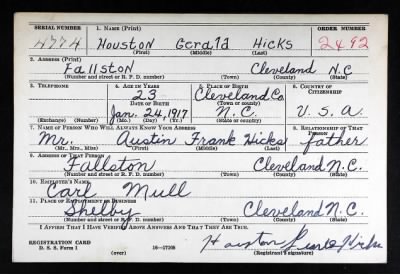 SERIAL NUMBER 1. NAME (Print) ORDER NUMBER
4774 Houston Gerald Hicks 2492
(First) (Middle) (Last)
2. ADDRESS (Print)
Fallston Cleveland N.C
(Number and street or R. F. D. number) (Town) (County) (State)
3. TELEPHONE 4. AGE IN YEARS 5. PLACE OF BIRTH 6. COUNTRY OF CITIZENSHIP
23 Cleveland Co
DATE OF BIRTH (Town or county)
Jan. 24, 1917 N.C. U.S.A.
(Exchange) (Number) (Mo.) (Day) (Yr.) (State or country)
7. NAME OF PERSON WHO WILL ALWAYS KNOW YOUR ADDRESS 8. RELATIONSHIP OF THAT PERSON
Mr. Austin Frank Hicks father
(Mr., Mrs., Miss) (First) (Middle) (Last)
9. ADDRESS OF THAT PERSON
Fallston Cleveland N.C.
(Number and street or R. F. D. number) (Town) (County) (State)
10. EMPLOYER'S NAME
Carl Mull
11. PLACE OF EMPLOYMENT OR BUSINESS
Shelby Cleveland N.C.
(Number and street or R. F. D. number) (Town) (County) (State)
I AFFIRM THAT I HAVE VERIFIED ABOVE ANSWERS AND THAT THEY ARE TRUE.
REGISTRATION CARD Houston Hicks
D. S. S. Form 1 (over) 16—17105 (Registrant's signature)